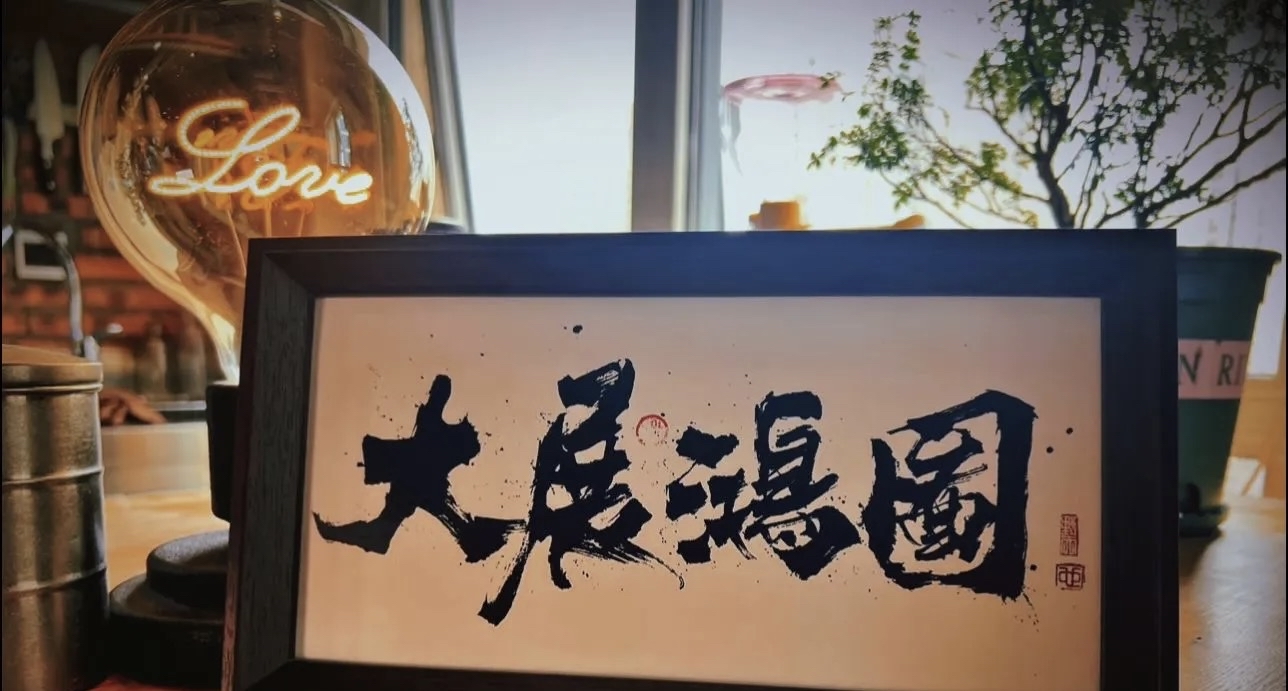 Love
大展鴻圖
N RI